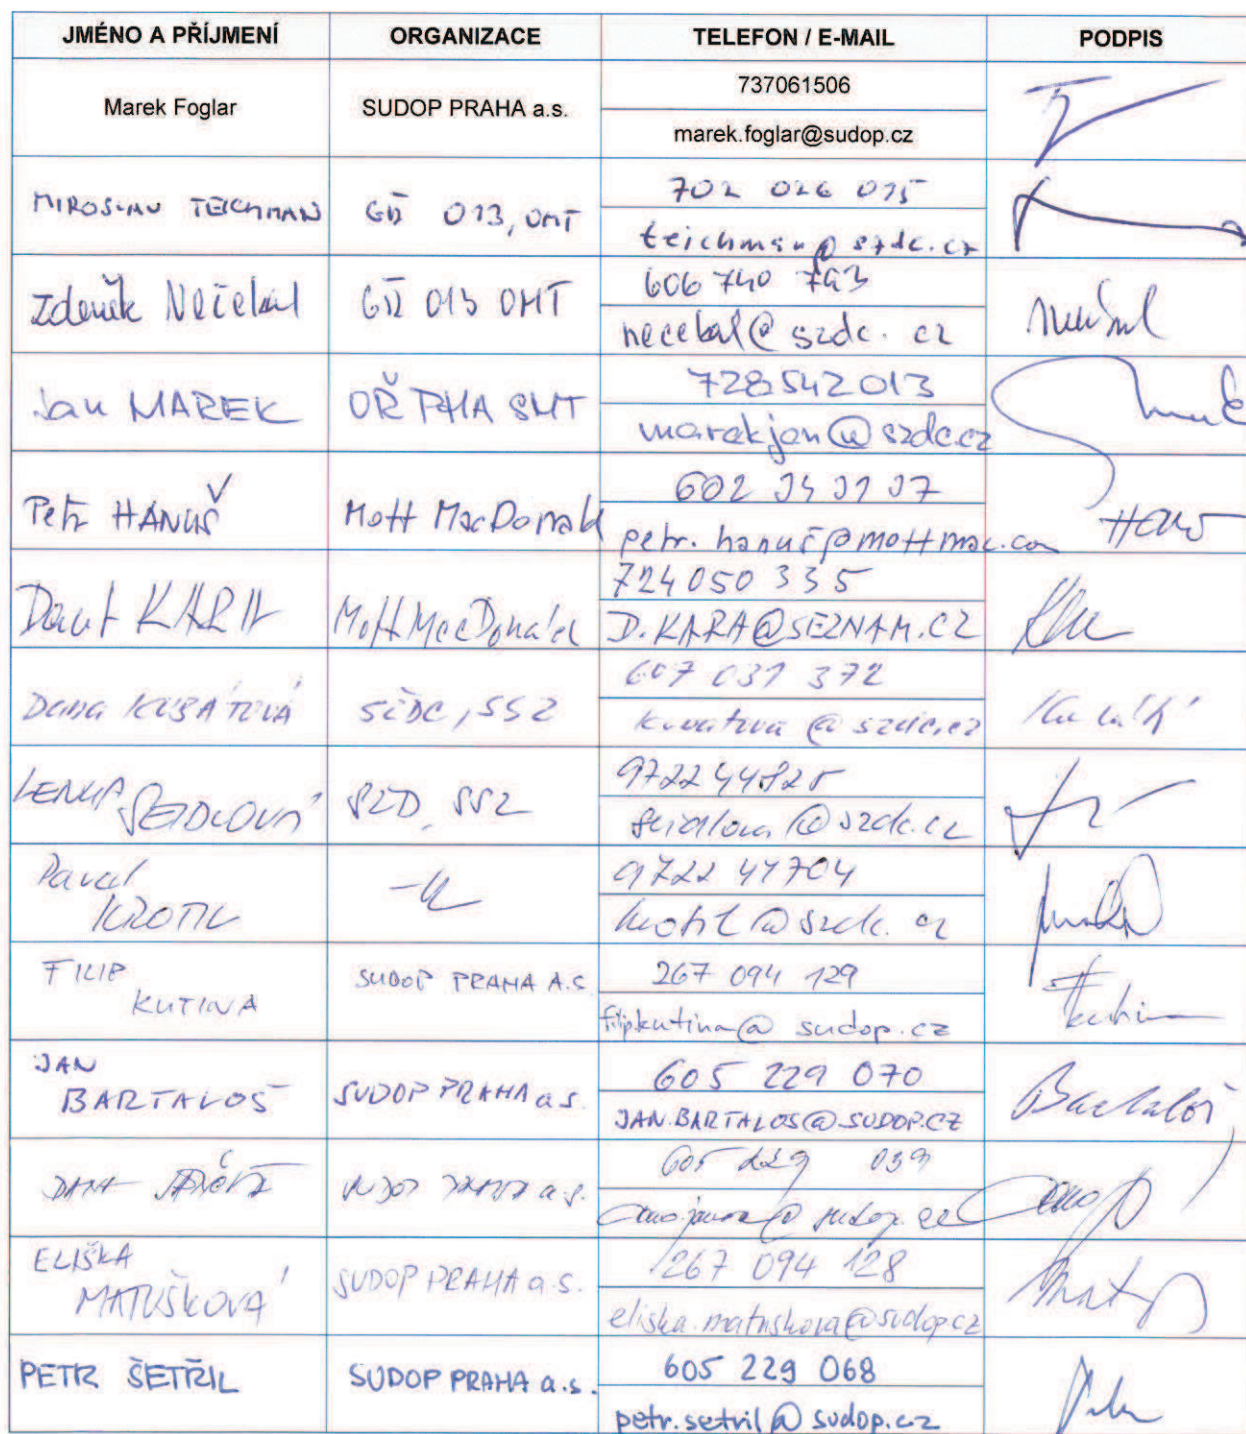 JMÉNO A PŘÍJMENÍ ORGANIZACE TELEFON / E-MAIL PODPIS
Marek Foglar SUDOP PRAHA a.s. 737061506
marek.foglar@sudop.cz
MIROSLAV TEICHMAN GŘ 013, OMT 702 026 015
teichman@szdc.cz
Zdeněk Nečekal GŘ 013 OMT 606 740 743
necekal@szdc.cz
Jan MAREK OŘ PHA SMT 728542013
marekjan@szdc.cz
Petr HANUŠ Mott MacDonald 602
petr.hanus@mottmac.com
KARA Mott MacDonald 724 050 335
D.KARA@SEZNAM.CZ
Dana KUBÁTOVÁ SŽDC, SSZ 607 031 372
@szdc.cz
LENKA SEIDLOVÁ SSZ 972244825
seidlova@szdc.cz
Pavel KROTIL 972241704
krotil@szdc.cz
FILIP
KUTINA SUDOP PRAHA A.S. 267 094 129
filip.kutina@sudop.cz
JAN
BARTALOŠ SUDOP PRAHA a.s. 605 229 070 Bartaloš
JAN.BARTALOS@SUDOP.CZ
SUDOP PRAHA a.s. 605 229 039
ELIŠKA
MATUŠKOVÁ SUDOP PRAHA a.s. 267 094 128
eliska.matuskova@sudop.cz
PETR ŠETŘIL SUDOP PRAHA a.s. 605 229 068
petr.setril@sudop.cz